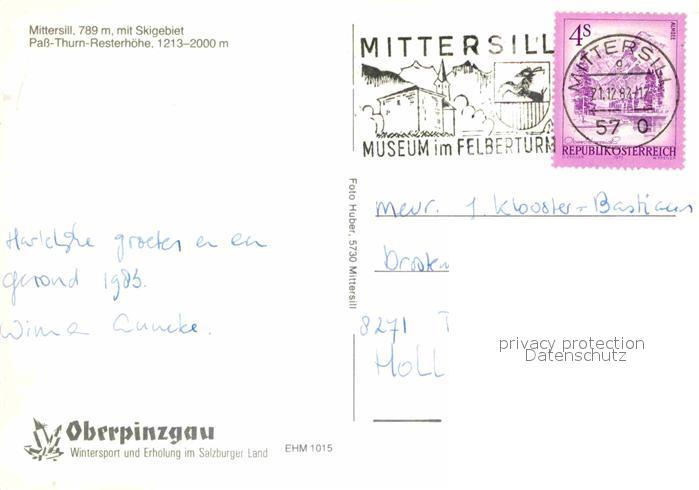 Mittersill, 789 m, mit Skigebiet
Paß-Thurn-Resterhöhe, 1213–2000 m
MITTERSILL
MUSEUM im FELBERTURM
4S
ALMSEE
REPUBLIK ÖSTERREICH
MITTERSILL
21.12.82-17
57 0
Foto Huber, 5730 Mittersill
Mevr. J. Klooster-Bastiaans
Dronten
8271 T
Holl
privacy protection
Datenschutz
Hartelijke groeten en een
gezond 1983.
Wim en Anneke.
Oberpinzgau
Wintersport und Erholung im Salzburger Land
EHM 1015